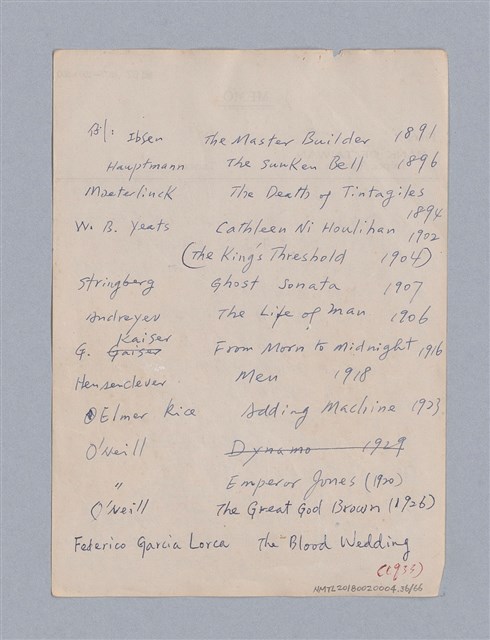 例: Ibsen The Master Builder 1891
Hauptmann The Sunken Bell 1896
Maeterlinck The Death of Tintagiles
1894
W. B. Yeats Cathleen Ni Houlihan 1902
(The King's Threshold 1904)
Stringberg Ghost Sonata 1907
Andreyev The Life of Man 1906
Kaiser
G. Gaiser From Morn to Midnight 1916
Hensenclever Men 1918
Elmer Rice Adding Machine 1923
O'Neill Dynamo 1929
" Emperor Jones (1920)
O'Neill The Great God Brown (1926)
Federico Garcia Lorca The Blood Wedding
(1933)
NMTL20180020004.36/66